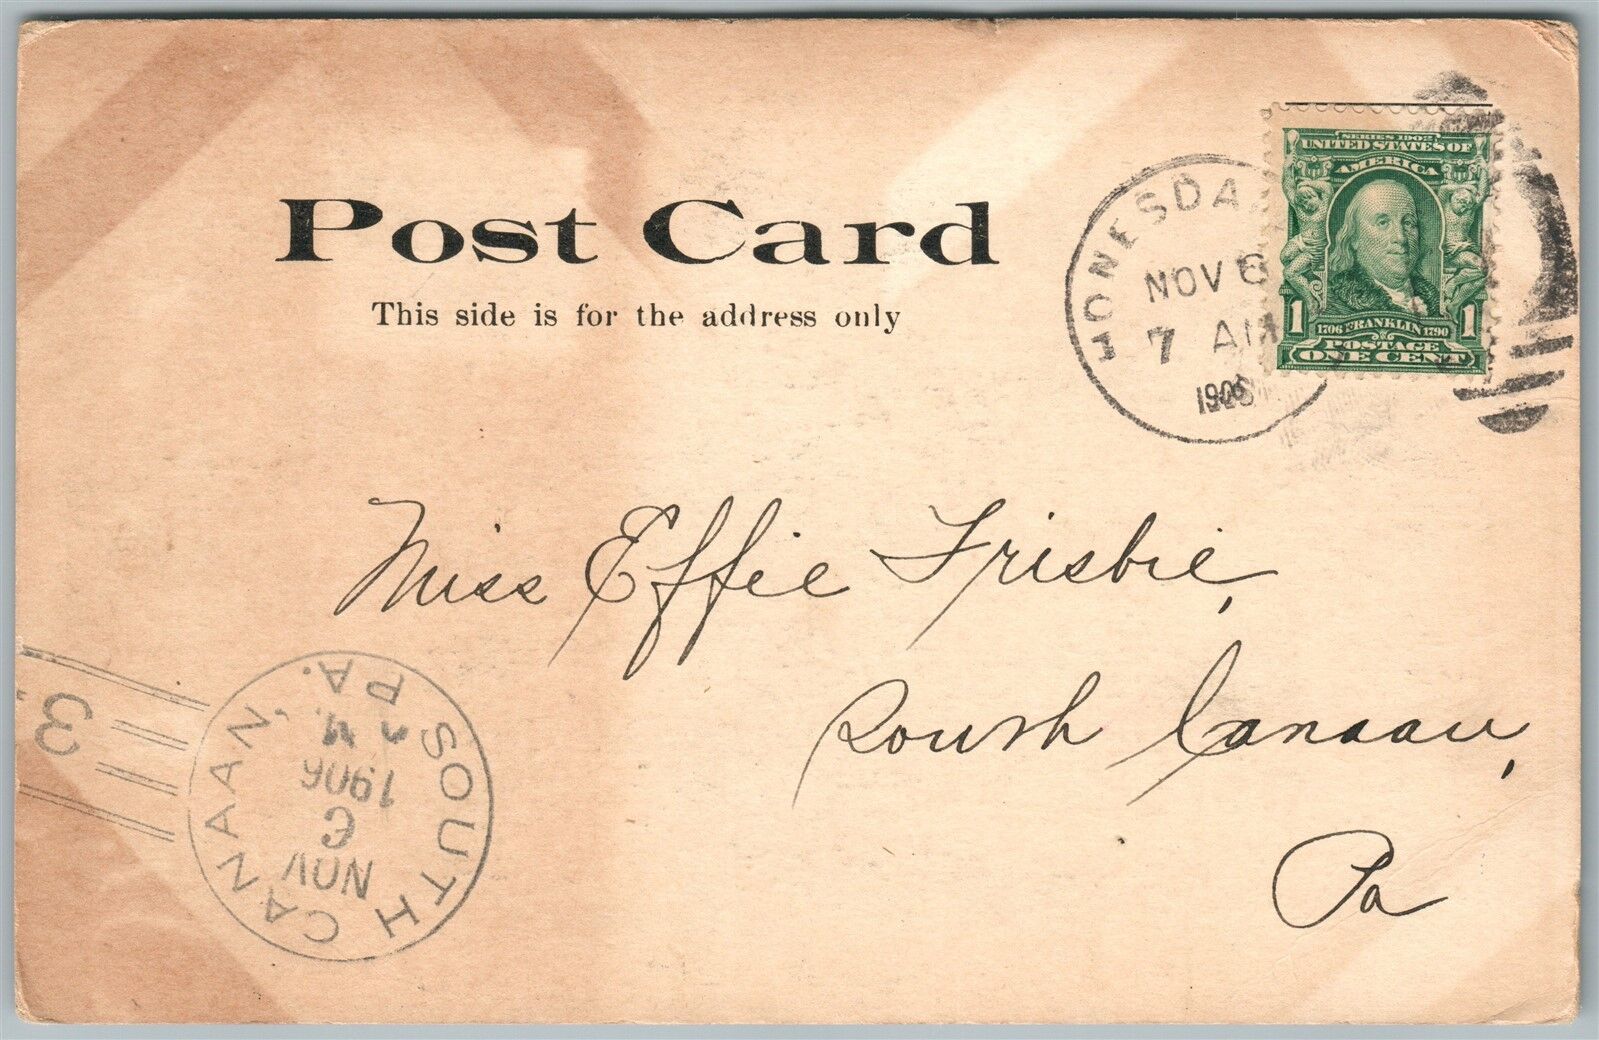 Post Card
This side is for the address only
HONESDA
NOV 6
7 AM
1906
SERIES 1902
UNITED STATES OF
AMERICA
1 1706 FRANKLIN 1790 1
POSTAGE
ONE CENT
Miss Effie Frisbie,
South Canaan,
Pa
SOUTH CANAAN, PA.
NOV
6
1906
3